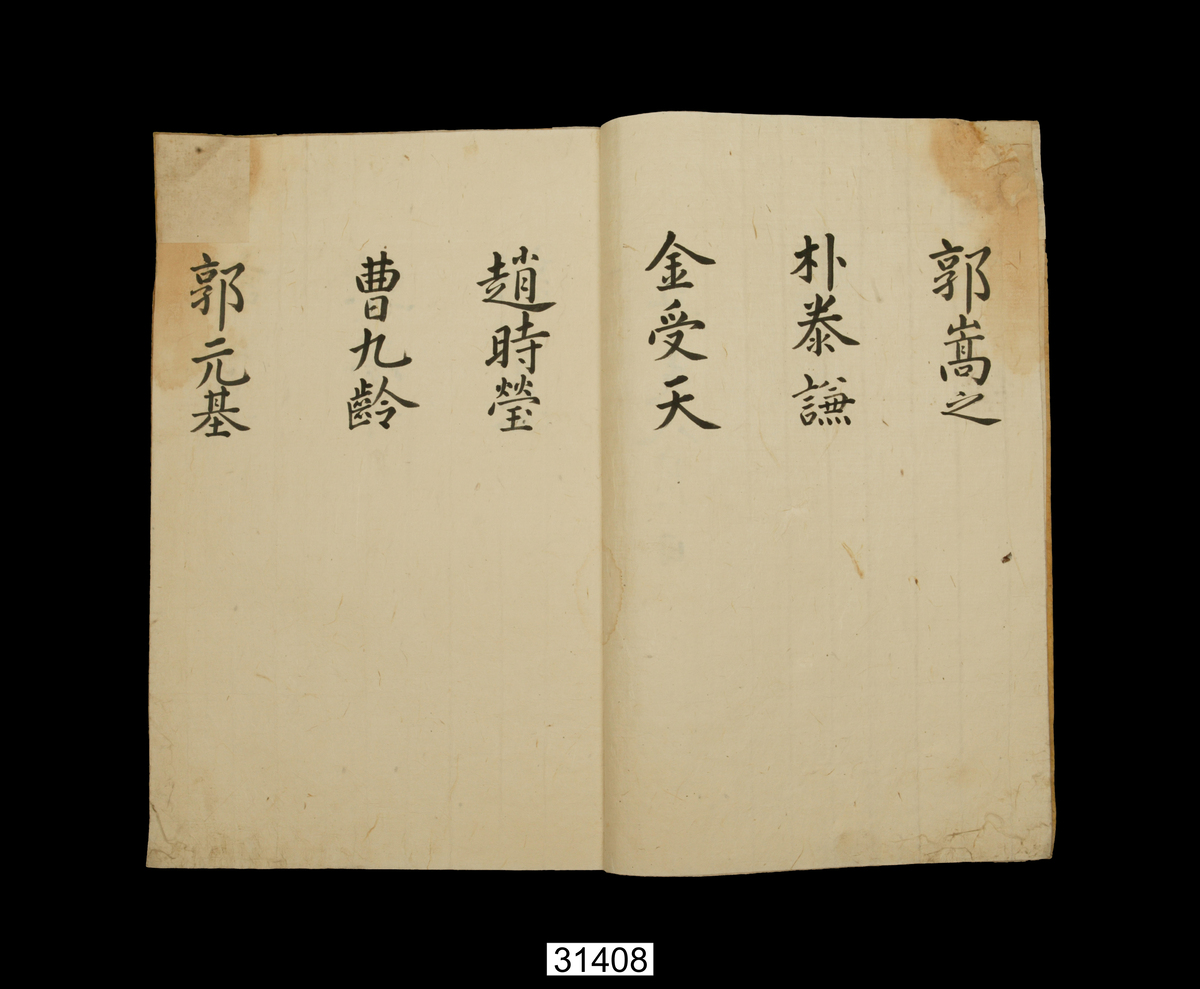 郭嵩之
朴泰謙
金受天
趙時瑩
曺九齡
郭元基
31408